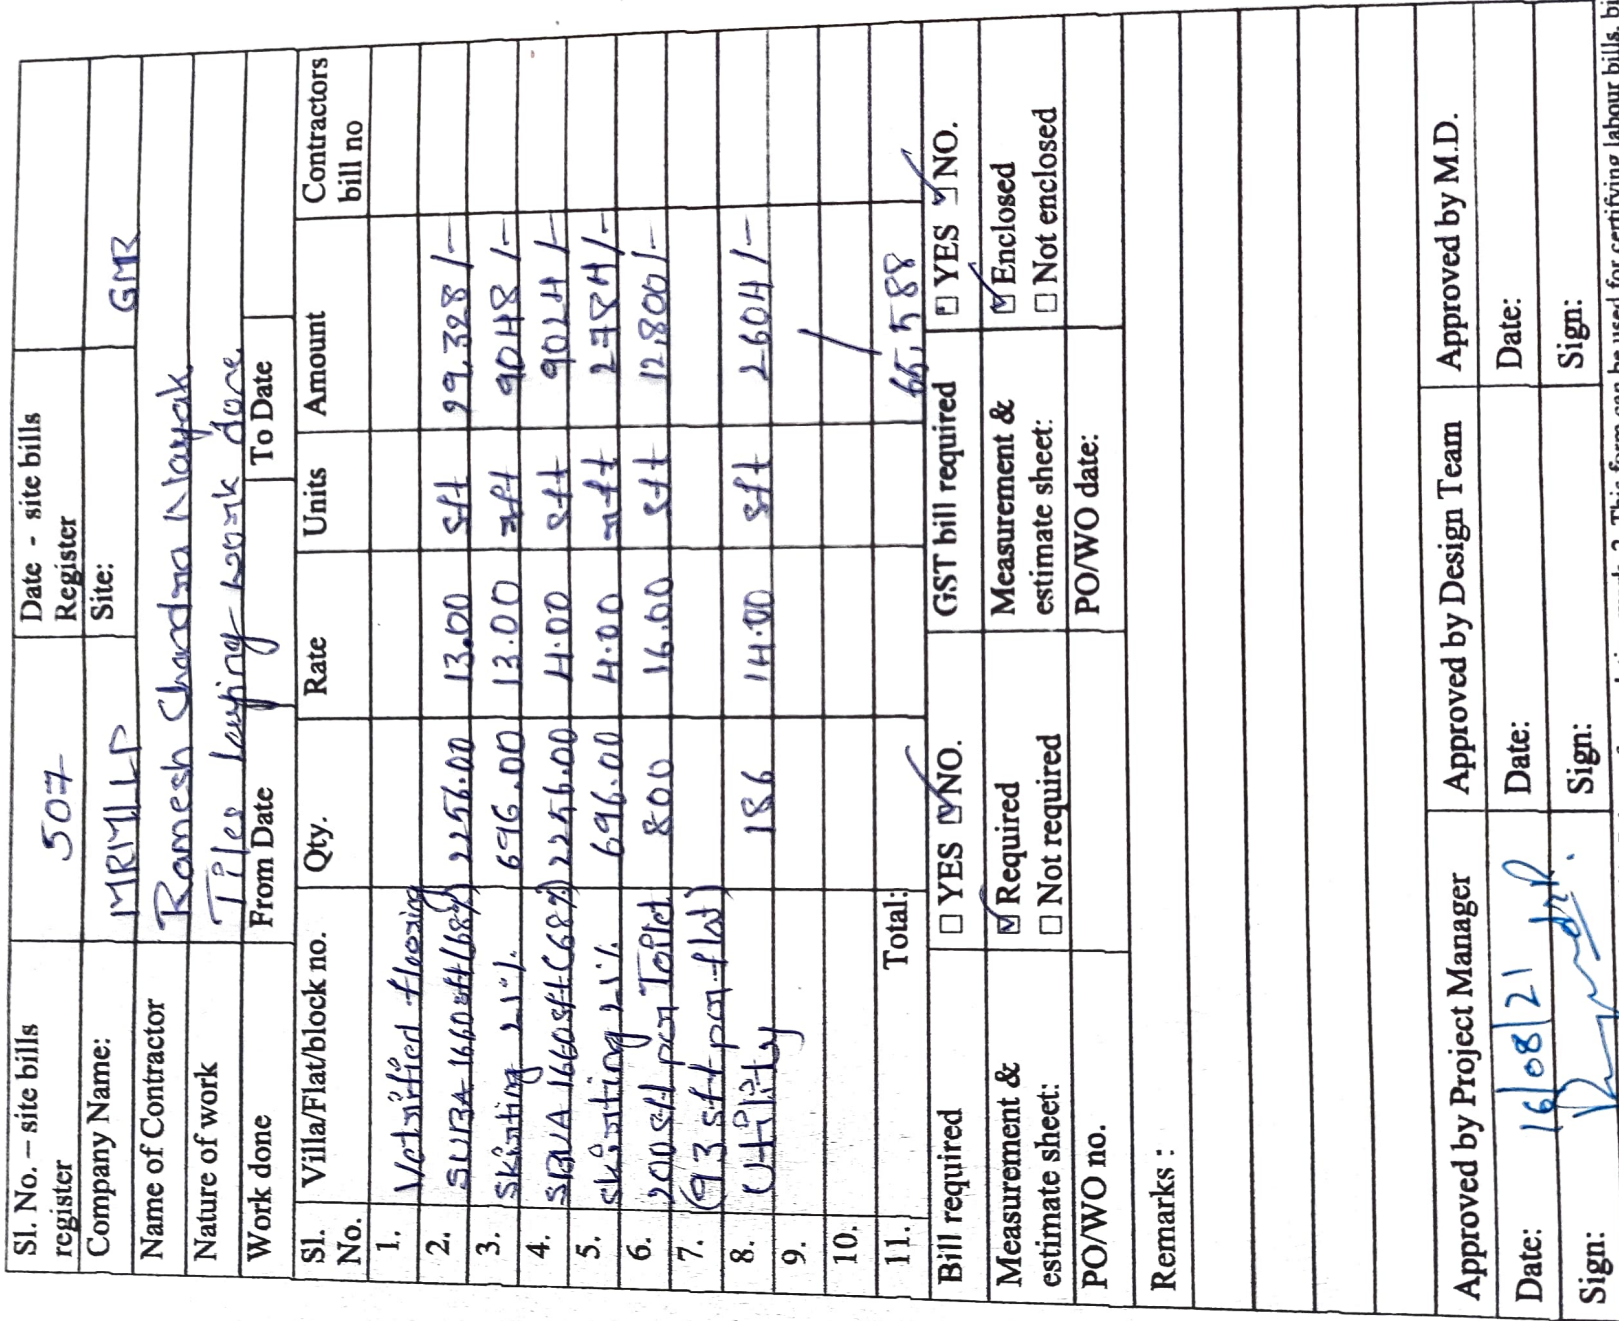 Sl. No. – site bills register 507 Date - site bills Register
Company Name: MRMLLP Site: GMR
Name of Contractor Ramesh Chandra Nayak
Nature of work Tiles laying work done.
Work done From Date To Date
Sl. No. Villa/Flat/block no. Qty. Rate Units Amount Contractors bill no
1. Vetrified flooring
2. SUBA 1660 sft (68%) 2256.00 13.00 sft 29,328/-
3. Skirting 21%. 696.00 13.00 rft 9048/-
4. SBUA 1660sft (68%) 2256.00 4.00 sft 9024/-
5. Skirting 21% 696.00 4.00 rft 2784/-
6. 200sft per Toilet 800 16.00 sft 12,800/-
7. (93 sft per flat)
8. Utility 186 14.00 sft 2604/-
9.
10.
11. Total: 65,588
Bill required □ YES ☑ NO. GST bill required □ YES ☑ NO.
Measurement & estimate sheet: ☑ Required □ Not required Measurement & estimate sheet: ☑ Enclosed □ Not enclosed
PO/WO no. PO/WO date:
Remarks :
Approved by Project Manager Approved by Design Team Approved by M.D.
Date: 16/08/21 Date: Date:
Sign: Sign: Sign:
2. This form can be used for certifying labour bills,